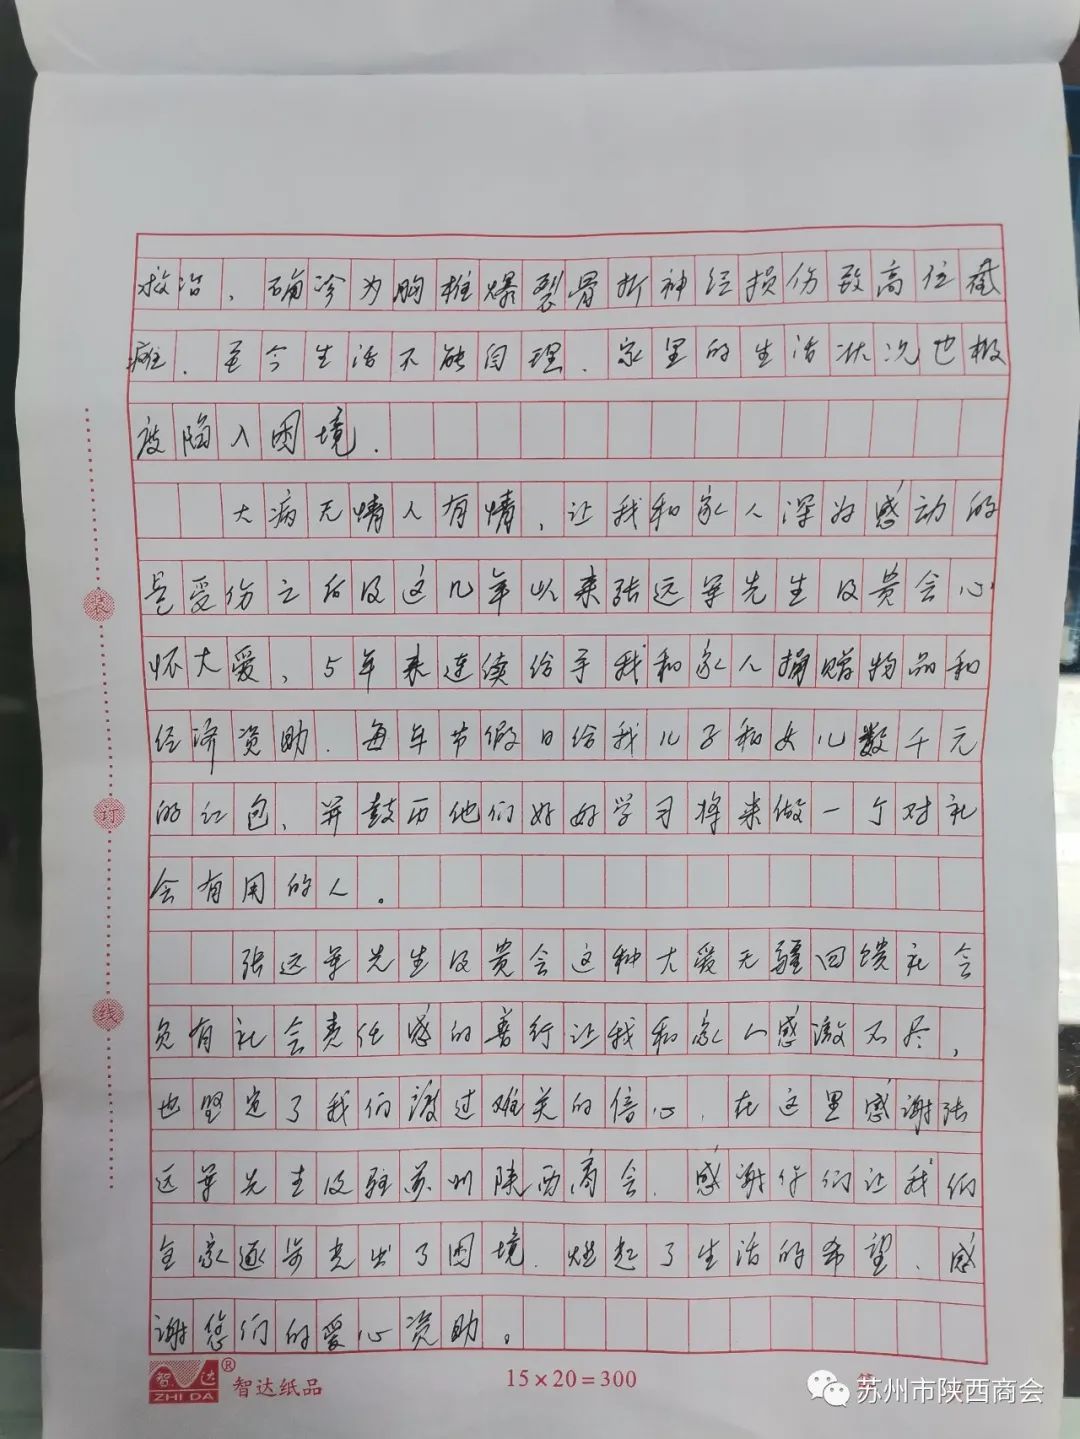 救治，确诊为胸椎爆裂骨折神经损伤致高位截
瘫．至今生活不能自理．家里的生活状况也极
度陷入困境．
大病无情人有情，让我和家人深为感动的
是受伤之后及这几年以来张远军先生及贵会心
怀大爱，5年来连续给予我和家人捐赠物品和
经济资助．每年节假日给我儿子和女儿数千元
的红包，并鼓历他们好好学习将来做一个对社
会有用的人。
张远军先生及贵会这种大爱无疆回馈社会
负有社会责任感的善行让我和家人感激不尽，
也坚定了我们渡过难关的信心．在这里感谢张
远军先生及驻苏州陕西商会．感谢你们让我们
全家逐步走出了困境．燃起了生活的希望、感
谢您们的爱心资助。
装
订
线
智达
ZHI DA
®
智达纸品
15×20=300
苏州市陕西商会